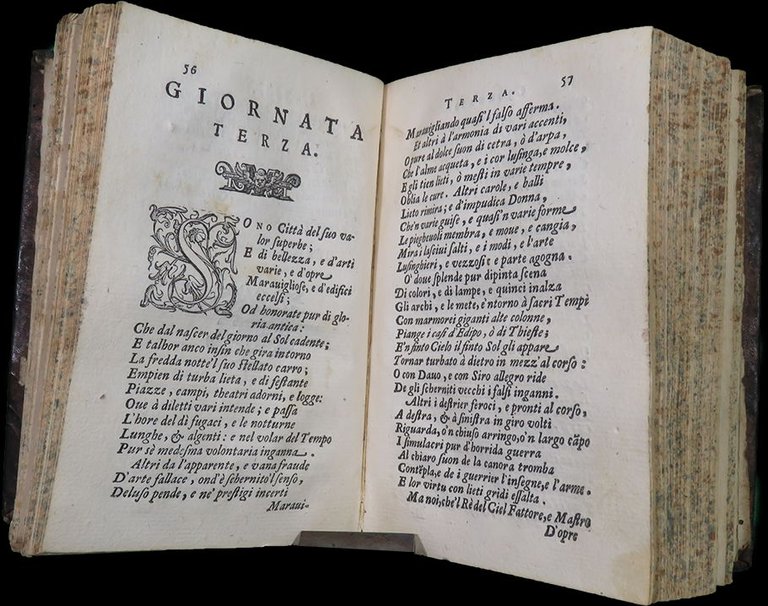 56
GIORNATA
TERZA.
SONO Città del suo va-
lor superbe;
E di bellezza, e d'arti
varie, e d'opre
Marauigliose, e d'edifici
eccelsi;
Od honorate pur di glo-
ria antica:
Che dal nascer del giorno al Sol cadente;
E talhor anco insin che gira intorno
La fredda notte'l suo stellato carro;
Empien di turba lieta, e di festante
Piazze, campi, theatri adorni, e logge:
Oue à diletti vari intende; e passa
L'hore del dì fugaci, e le notturne
Lunghe, & algenti: e nel volar del Tempo
Pur sè medesma volontaria inganna.
Altri da l'apparente, e vana fraude
D'arte fallace, ond'è schernito'l senso,
Deluso pende, e ne' prestigi incerti
Maraui-
TERZA.
57
Marauigliando quasi'l falso afferma.
Et altri à l'armonia di vari accenti,
O pure al dolce suon di cetra, ò d'arpa,
Che l'alme acqueta, e i cor lusinga, e molce,
E gli tien lieti, ò mesti in varie tempre,
Oblia le cure. Altri carole, e balli
Lieto rimira; e d'impudica Donna,
Che'n varie guise, e quasi'n varie forme
Le piegheuoli membra, e moue, e cangia,
Mira i lasciui salti, e i modi, e l'arte
Lusinghieri, e vezzosi: e parte agogna.
O' doue splende pur dipinta scena
Di colori, e di lampe, e quinci inalza
Gli archi, e le mete, e'ntorno à sacri Tempi
Con marmorei giganti alte colonne,
Piange i casi d'Edipo, ò di Thieste;
E'n finto Cielo il finto Sol gli appare
Tornar turbato à dietro in mezz'al corso:
O con Dauo, e con Siro allegro ride
De gli scherniti vecchi i falsi inganni.
Altri i destrier feroci, e pronti al corso,
A destra, & à sinistra in giro volti
Riguarda, ò'n chiuso arringo, ò'n largo cãpo
I simulacri pur d'horrida guerra
Al chiaro suon de la canora tromba
Contẽpla, e de i guerrier l'insegne, e l'arme.
E lor virtu con lieti gridi essalta.
Ma noi, che'l Rè del Ciel Fattore, e Mastro
D'opre